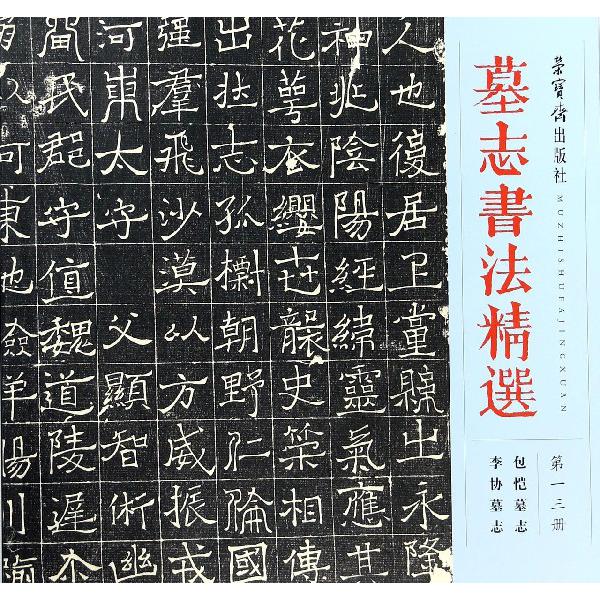 榮寶齋出版社
墓志書法精選
MUZHISHUFAJINGXUAN
第一三册
包恺墓志
李协墓志
人也復居黨縣出永隆
神陰陽經緯靈氣應其
花萼衣纓史相傳
出壯志孤檦朝野仁倫國
強羣飛沙漠以方威振戎
河東太守父顯智術幽
民郡守值魏道陵遲
可東也險羊陽川